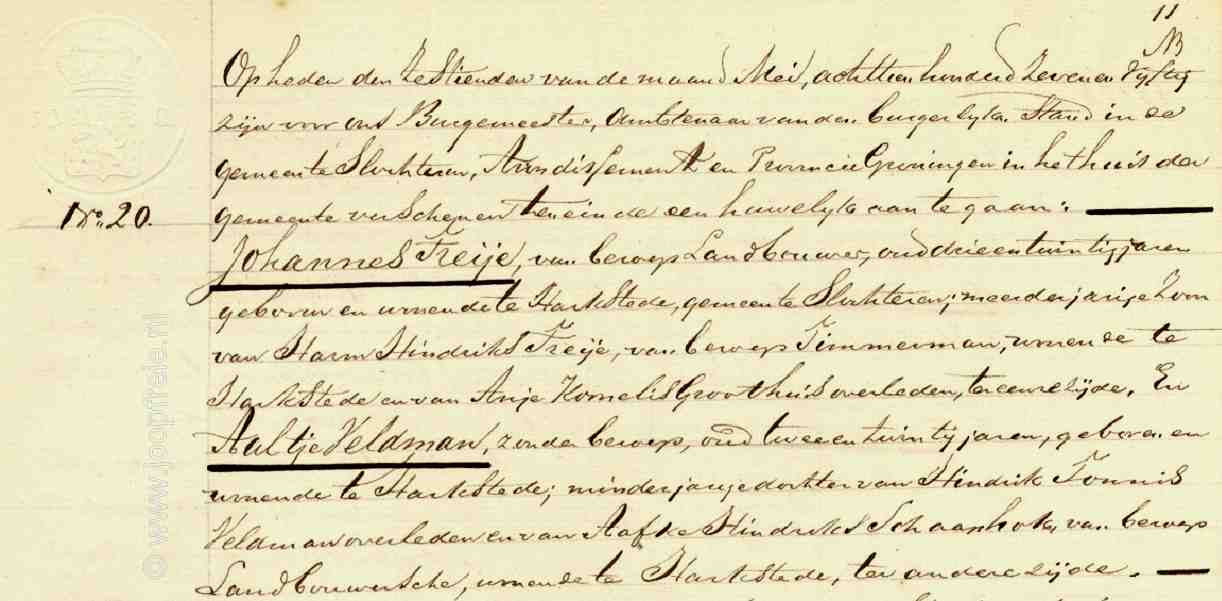 11
NB
Op heden den Zestienden van de maand Mei, achttienhonderd Zeven en Vijftig
zijn voor ons Burgemeester, Ambtenaar van den burgerlyken Stand in de
gemeente Slochteren, Arrondissement en Provincie Groningen in het huis der
No. 20.
gemeente verschenen ten einde een huwelyk aan te gaan:
Johannes Freije, van beroep Landbouwer, oud drie en twintig jaren
geboren en wonende te Harkstede, gemeente Slochteren; meerderjarige Zoon
van Harm Hindriks Freije, van beroep Timmerman, wonende te
Harkstede en van Anje Kornelis Groothuis overleden, ter eenre zijde. En
Aaltje Veldman, zonder beroep, oud twee en twintig jaren, geboren en
wonende te Harkstede; minderjarige dochter van Hindrik Tonnis
Veldman overleden en van Aafke Hindriks Schaaphok, van beroep
Landbouwersche, wonende te Harkstede, ter andere zijde.
© www.jooptreie.nl